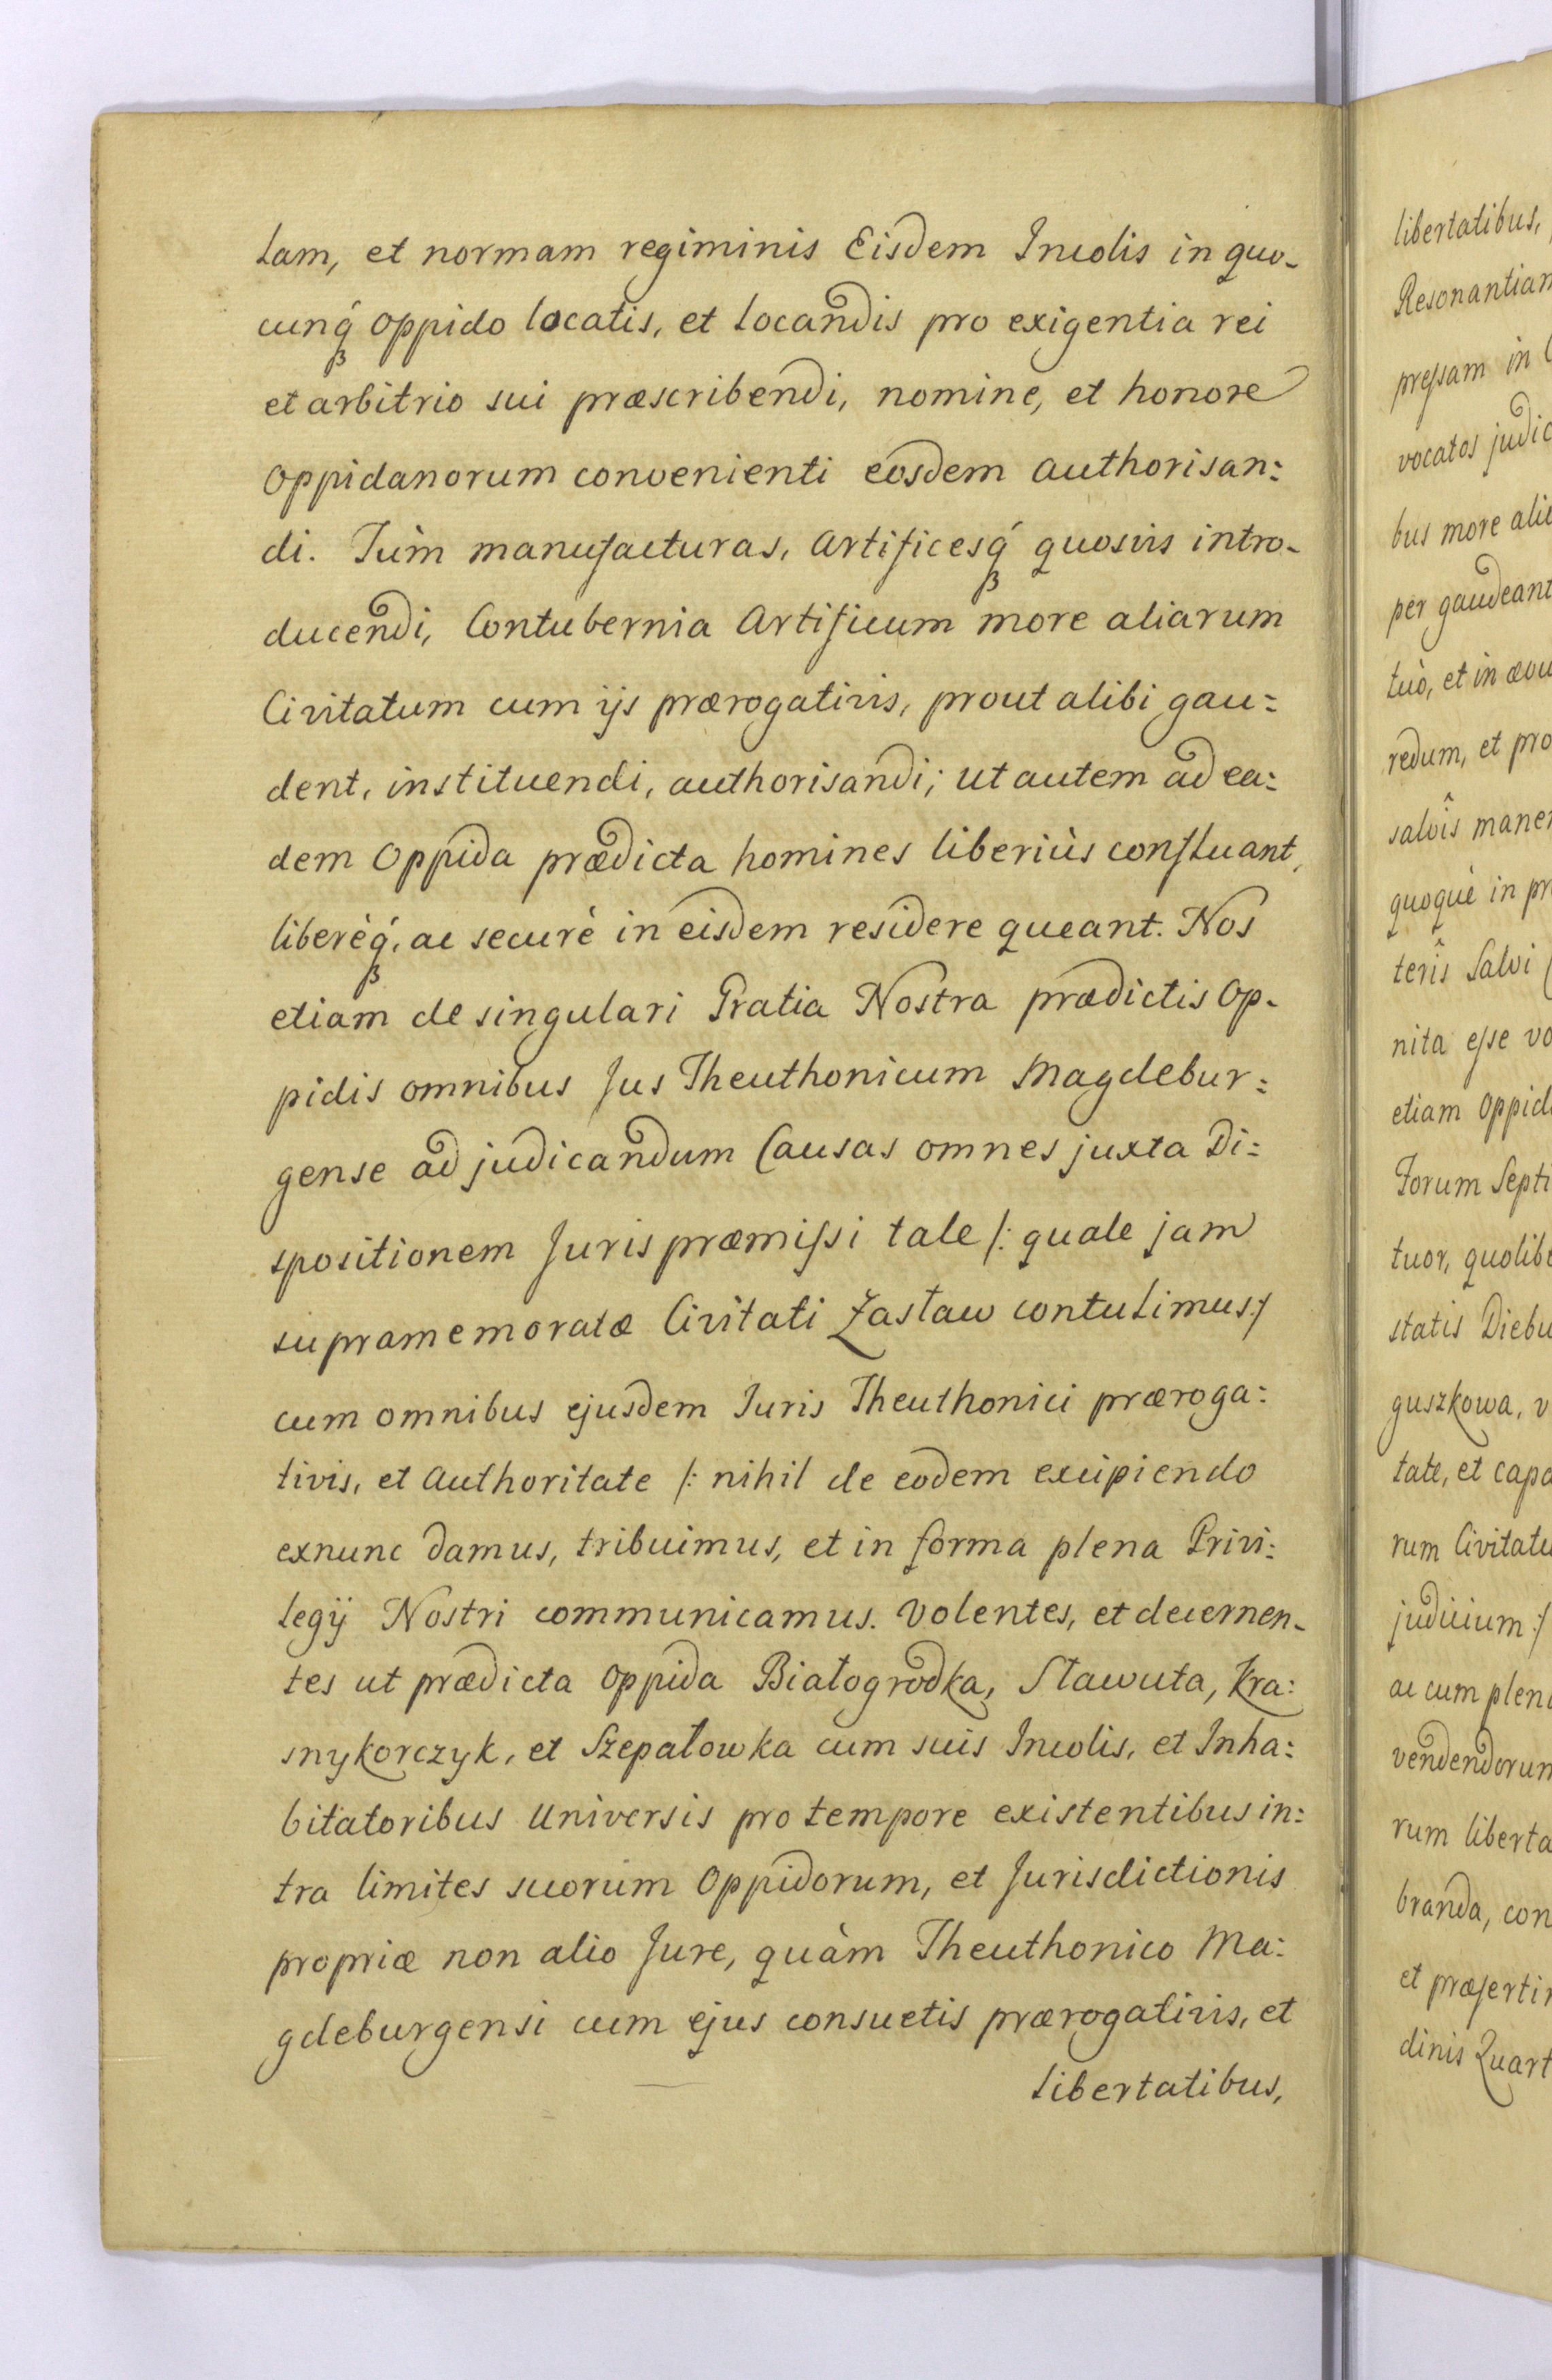 lam, et normam regiminis Eisdem Incolis in quo-
cunq́ꝫ oppido locatis, et locandis pro exigentia rei
et arbitrio sui præscribendi, nomine, et honore
oppidanorum convenienti eosdem authorisan:
di. Tùm manufacturas, Artificesq́ꝫ quosvis intro-
ducendi, Contubernia Artificum more aliarum
Civitatum cum ijs prærogativis, prout alibi gau:
dent, instituendi, authorisandi; ut autem ad ea:
dem Oppida prædicta homines liberiùs confluant,
liberèq́ꝫ, ac securè in eisdem residere queant. Nos
etiam de singulari Gratia Nostra prædictis Op-
pidis omnibus Jus Theuthonicum Magdebur:
gense ad judicandum Causas omnes juxta Di:
spositionem Juris præmissi tale /: quale jam
supramemoratæ Civitati Zasław contulimus :/
cum omnibus ejusdem Juris Theuthonici præroga:
tivis, et Authoritate /: nihil de eodem excipiendo
exnunc damus, tribuimus, et in forma plena Privi:
legij Nostri communicamus. Volentes, et decernen-
tes ut prædicta Oppida Białogrodka, Sławuta, Kra:
snykorczyk, et Szepałowka cum suis Incolis, et Inha:
bitatoribus Universis pro tempore existentibus in:
tra limites suorum Oppidorum, et Jurisdictionis
propriæ non alio Jure, quàm Theuthonico Ma:
gdeburgensi cum ejus consuetis prærogativis, et
libertatibus,
libertatibus,
Resonantiam
pressam in
vocatos judic
bus more alia
per gaudeant
tuò, et in ævu
redum, et pro
salvîs maner
quoquè in pr
terîs Salvi
nita esse vo
etiam Oppid
Forum Septi
tuor, quolibe
statis Diebu
guszkowa, v
tate, et capa
rum Civitatu
judicium :/
ac cum plena
vendendorum
rum liberta
branda, con
et præserti
dinis Quart